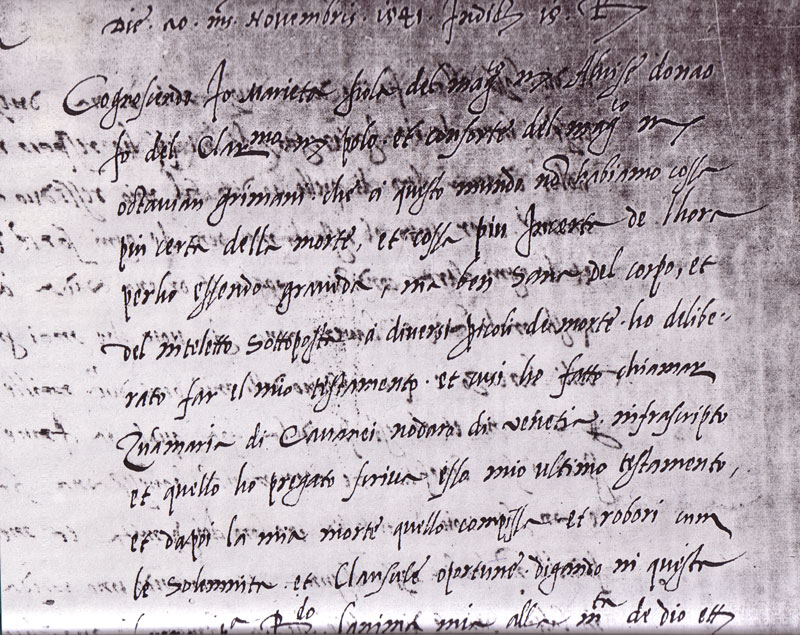 Die. 20. ms. Novembris. 1541. Indict. 15. R
Cognoscendo Io Marieta fiola del magco mr Alvise donao
fo del Clarmo mr polo. et consorte del magco mr
octavian grimani. che i questo mundo no habiamo cossa
piu certa della morte, et cossa piu Incerta de lhora
perho essendo graveda, ma ben sana del corpo, et
del inteletto sottoposta a diversi picoli de morte. ho delibe-
rato far el mio testamento. et cusi ho fatto chiamar
Zuamaria di Cavanei nodaro di venetia infrascripto
et quello ho pregato scriva esso mio ultimo testamento,
et dapoi la mia morte quello compissa et robori cum
le solennita et clausule oportune. digando in questa
Rdo lanima mia alla mta de dio et